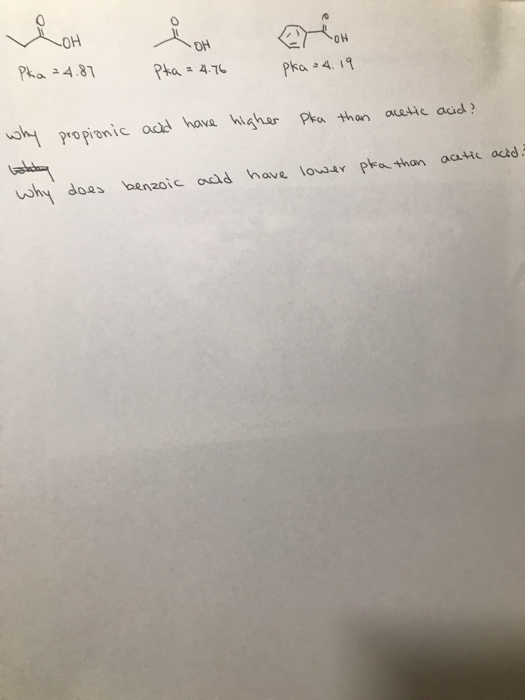 O
OH
O
OH
O
OH
Pka = 4.87
Pka = 4.76
pka = 4.19
why propionic acid have higher Pka than acetic acid?
Why does benzoic acid have lower pka than acitic acid?